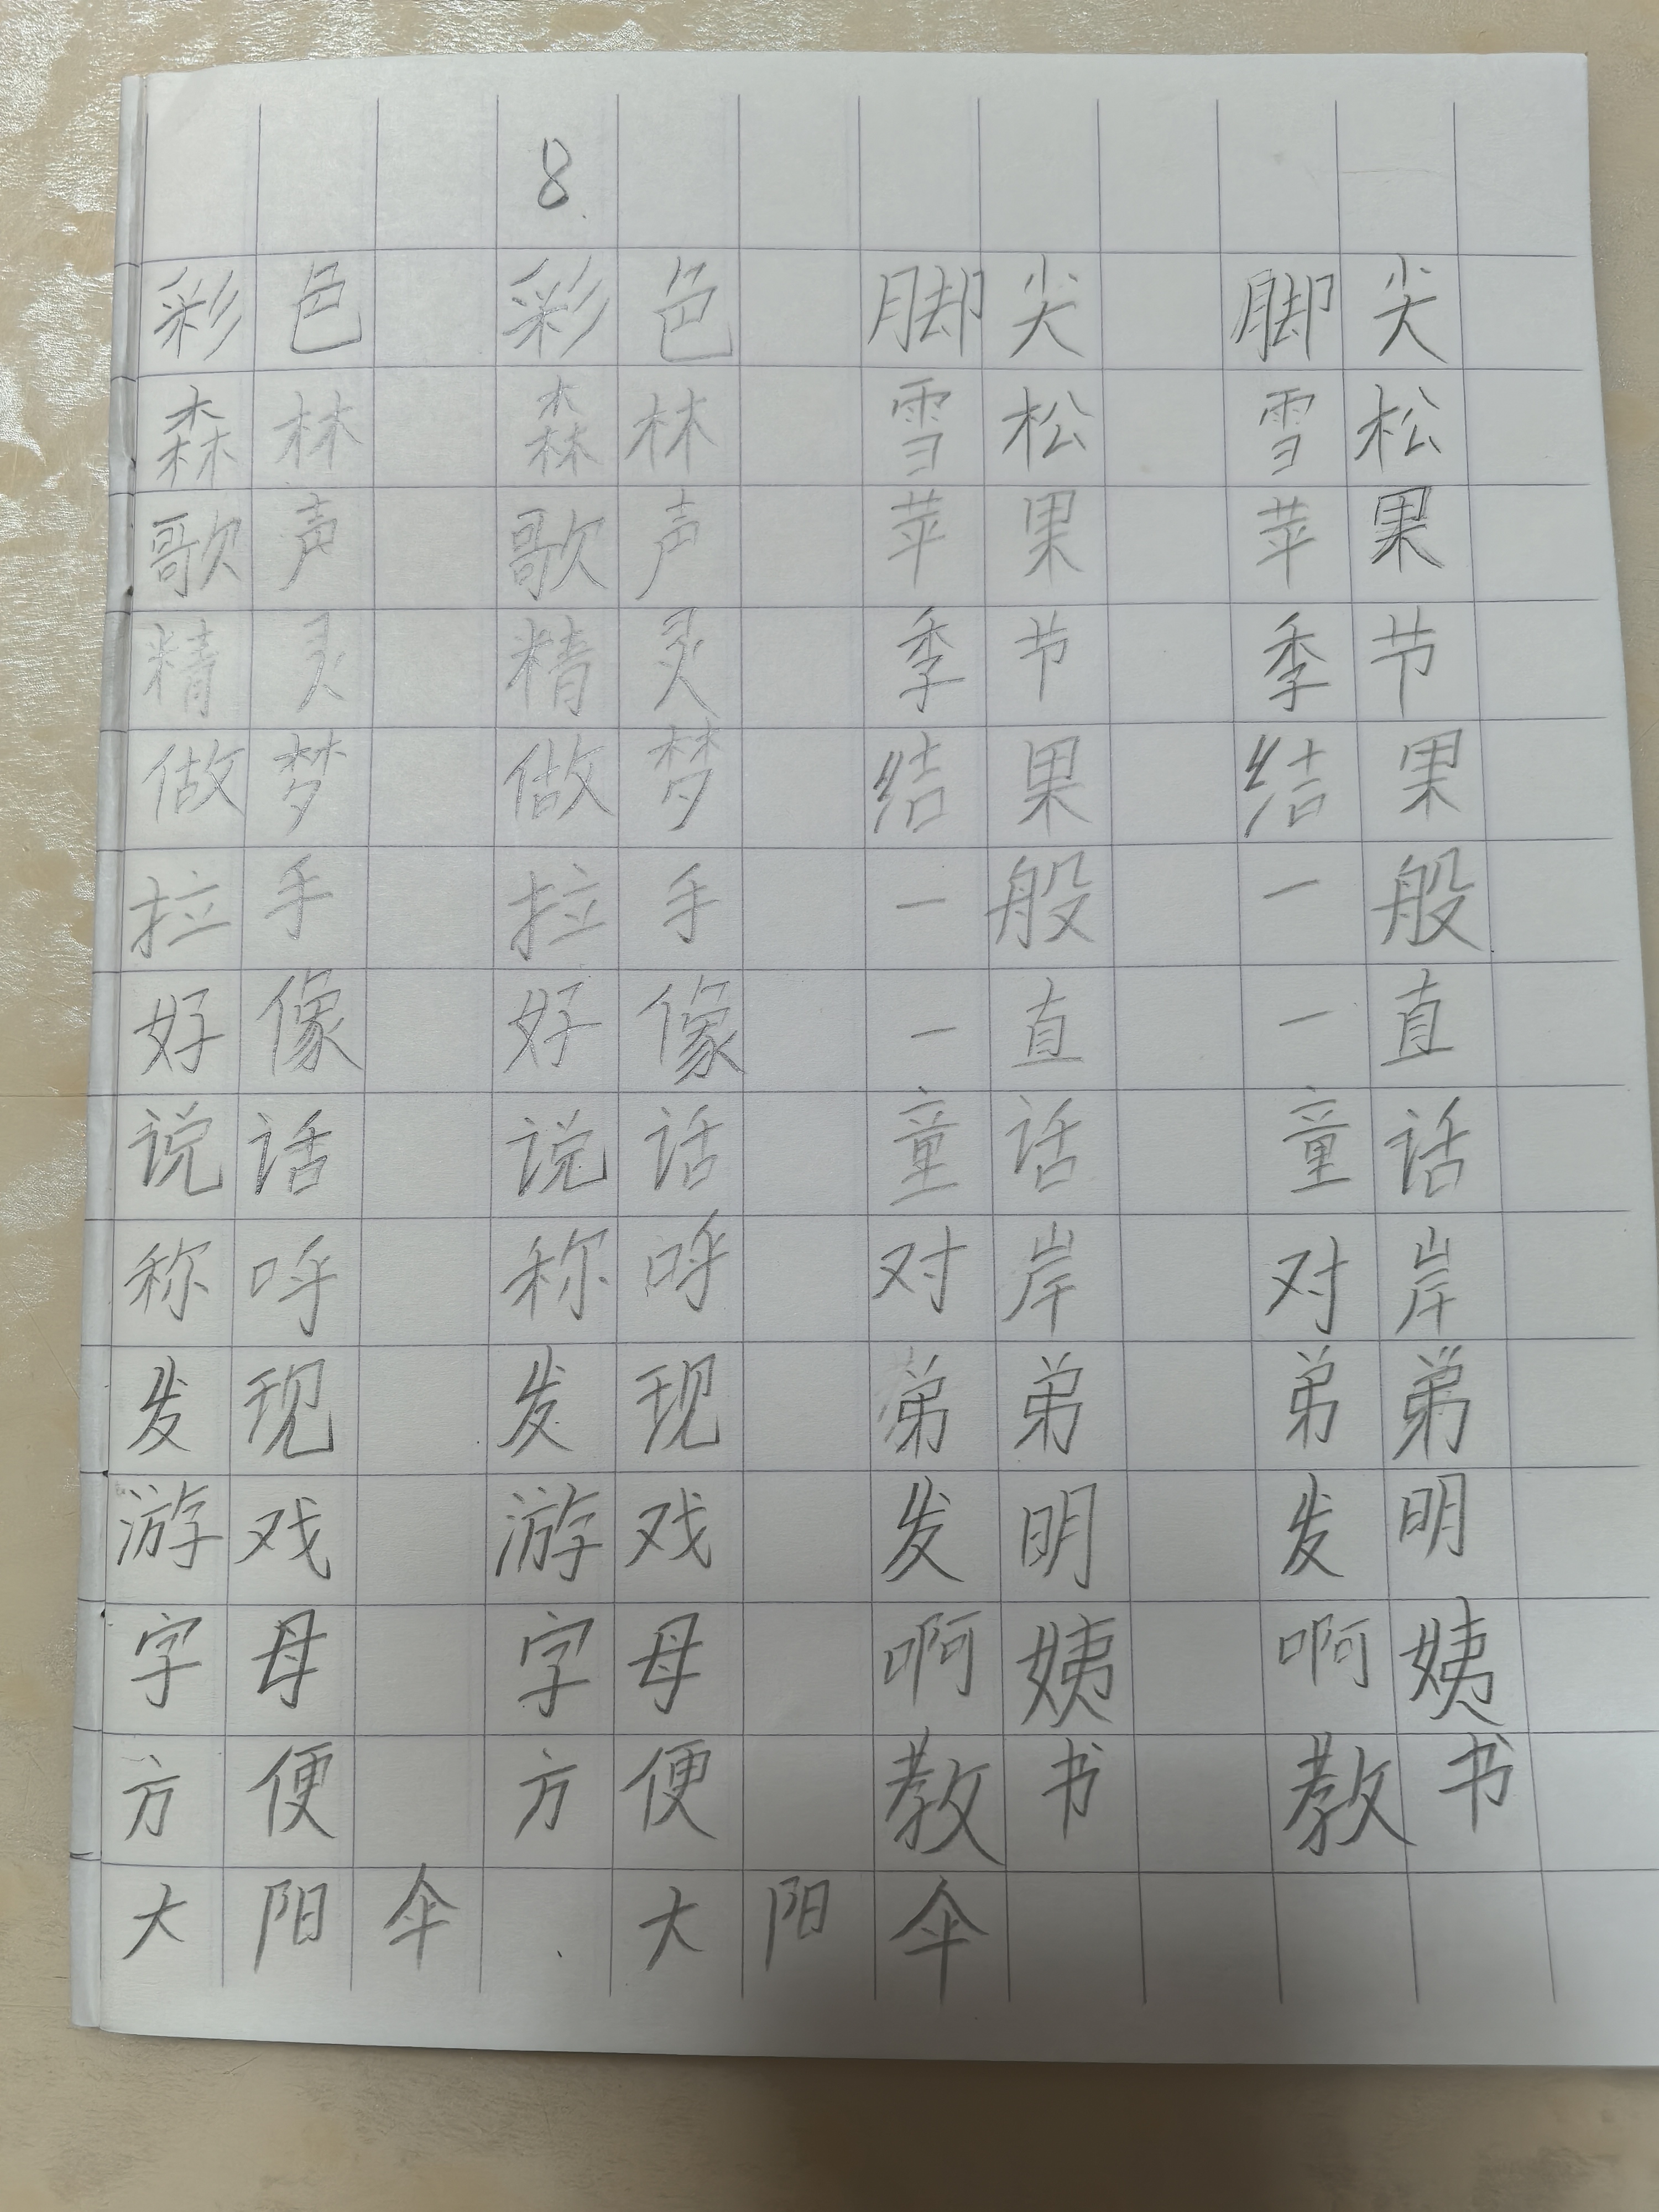 8
彩色 彩色 脚尖 脚尖
森林 森林 雪松 雪松
歌声 歌声 苹果 苹果
精灵 精灵 季节 季节
做梦 做梦 结果 结果
拉手 拉手 一般 一般
好像 好像 一直 一直
说话 说话 童话 童话
称呼 称呼 对岸 对岸
发现 发现 弟弟 弟弟
游戏 游戏 发明 发明
字母 字母 啊姨 啊姨
方便 方便 教书 教书
大阳伞 大阳伞